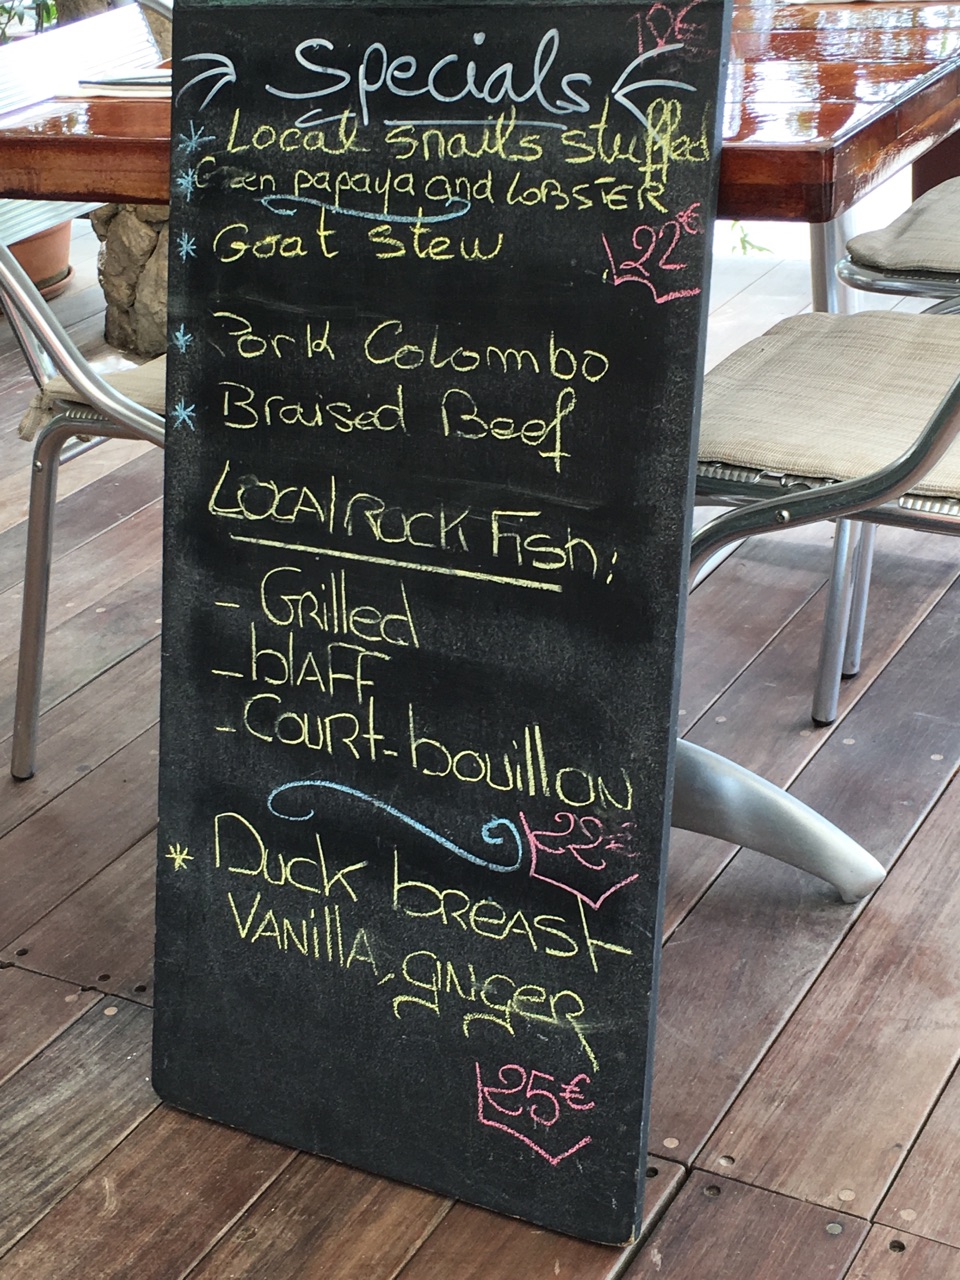 Specials
Local snails stuffed
papaya, and LOBSTER
Goat stew
22€
Pork Colombo
Braised Beef
LOCAL ROCK Fish:
- Grilled
- blAFF
- COURT-bouillon
22€
* Duck breast
VANillA, giNger
25€